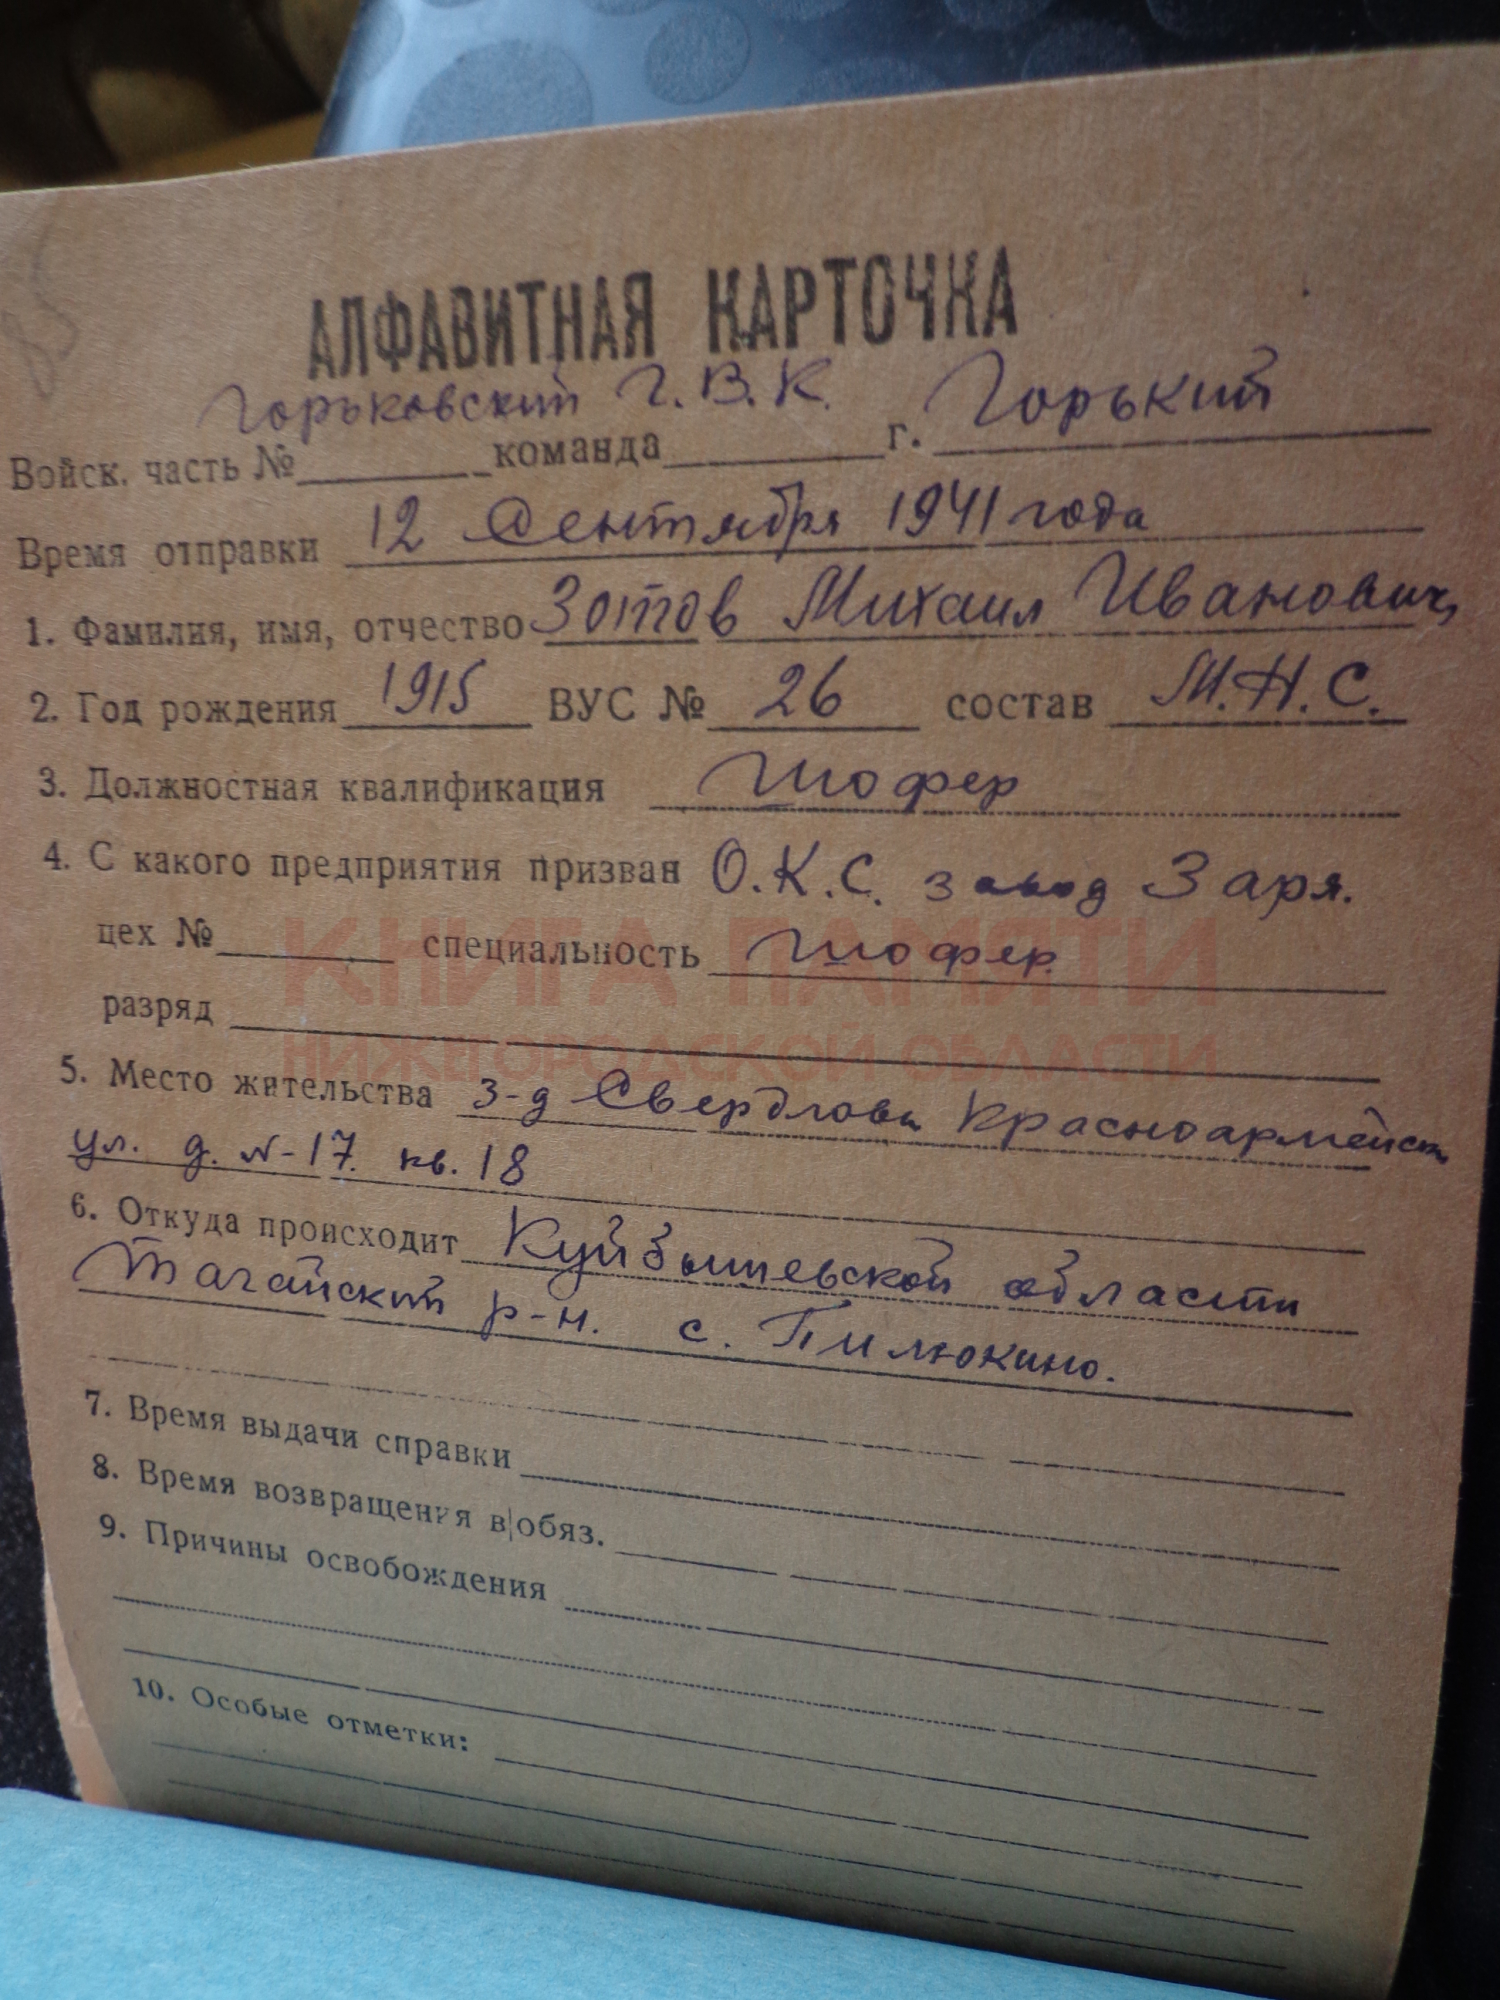 АЛФАВИТНАЯ КАРТОЧКА
Горьковский Г.В.К.
Войск. часть № команда г. Горький
Время отправки 12 Сентября 1941 года
1. Фамилия, имя, отчество Зотов Михаил Иванович
2. Год рождения 1915 ВУС № 26 состав М.Н.С.
3. Должностная квалификация Шофер
4. С какого предприятия призван О.К.С. завод Заря.
цех № специальность Шофер.
разряд
КНИГА ПАМЯТИ
НИЖЕГОРОДСКОЙ ОБЛАСТИ
5. Место жительства з-д Свердлова Красноармейск
ул. д. N-17. кв. 18
6. Откуда происходит Куйбышевской области
Тагайский р-н. с. Пилюкино.
7. Время выдачи справки
8. Время возвращения в обяз.
9. Причины освобождения
10. Особые отметки: